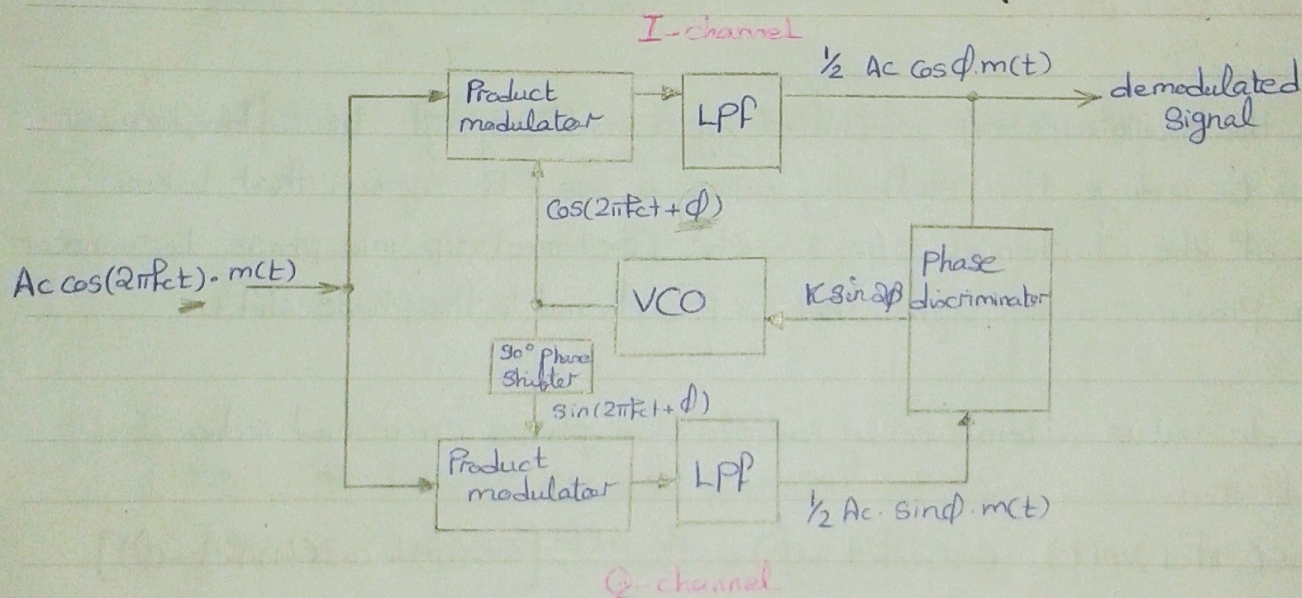 I-channel
½ Ac Cosϕ.m(t)
Product
modulator
LPf
demodulated
Signal
Cos(2πfct + ϕ)
Ac cos(2πfct). m(t)
VCO
K sin2ϕ
Phase
discriminator
90° Phase
Shifter
sin(2πfct + ϕ)
Product
modulator
LPf
½ Ac. sinϕ.m(t)
Q-channel